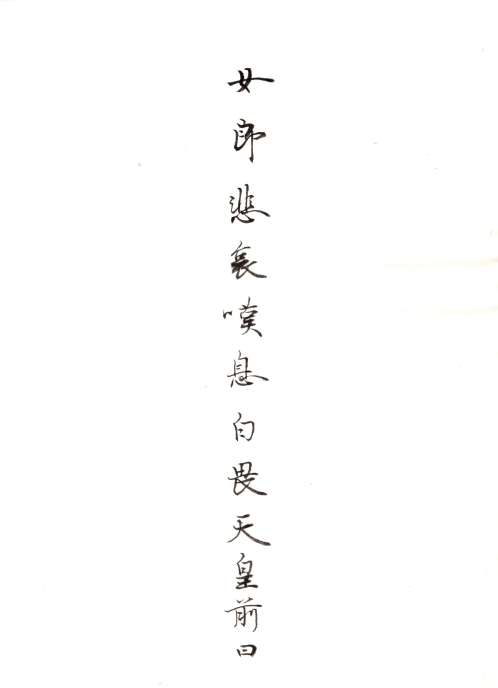 女郎悲哀嘆息白畏天皇前曰